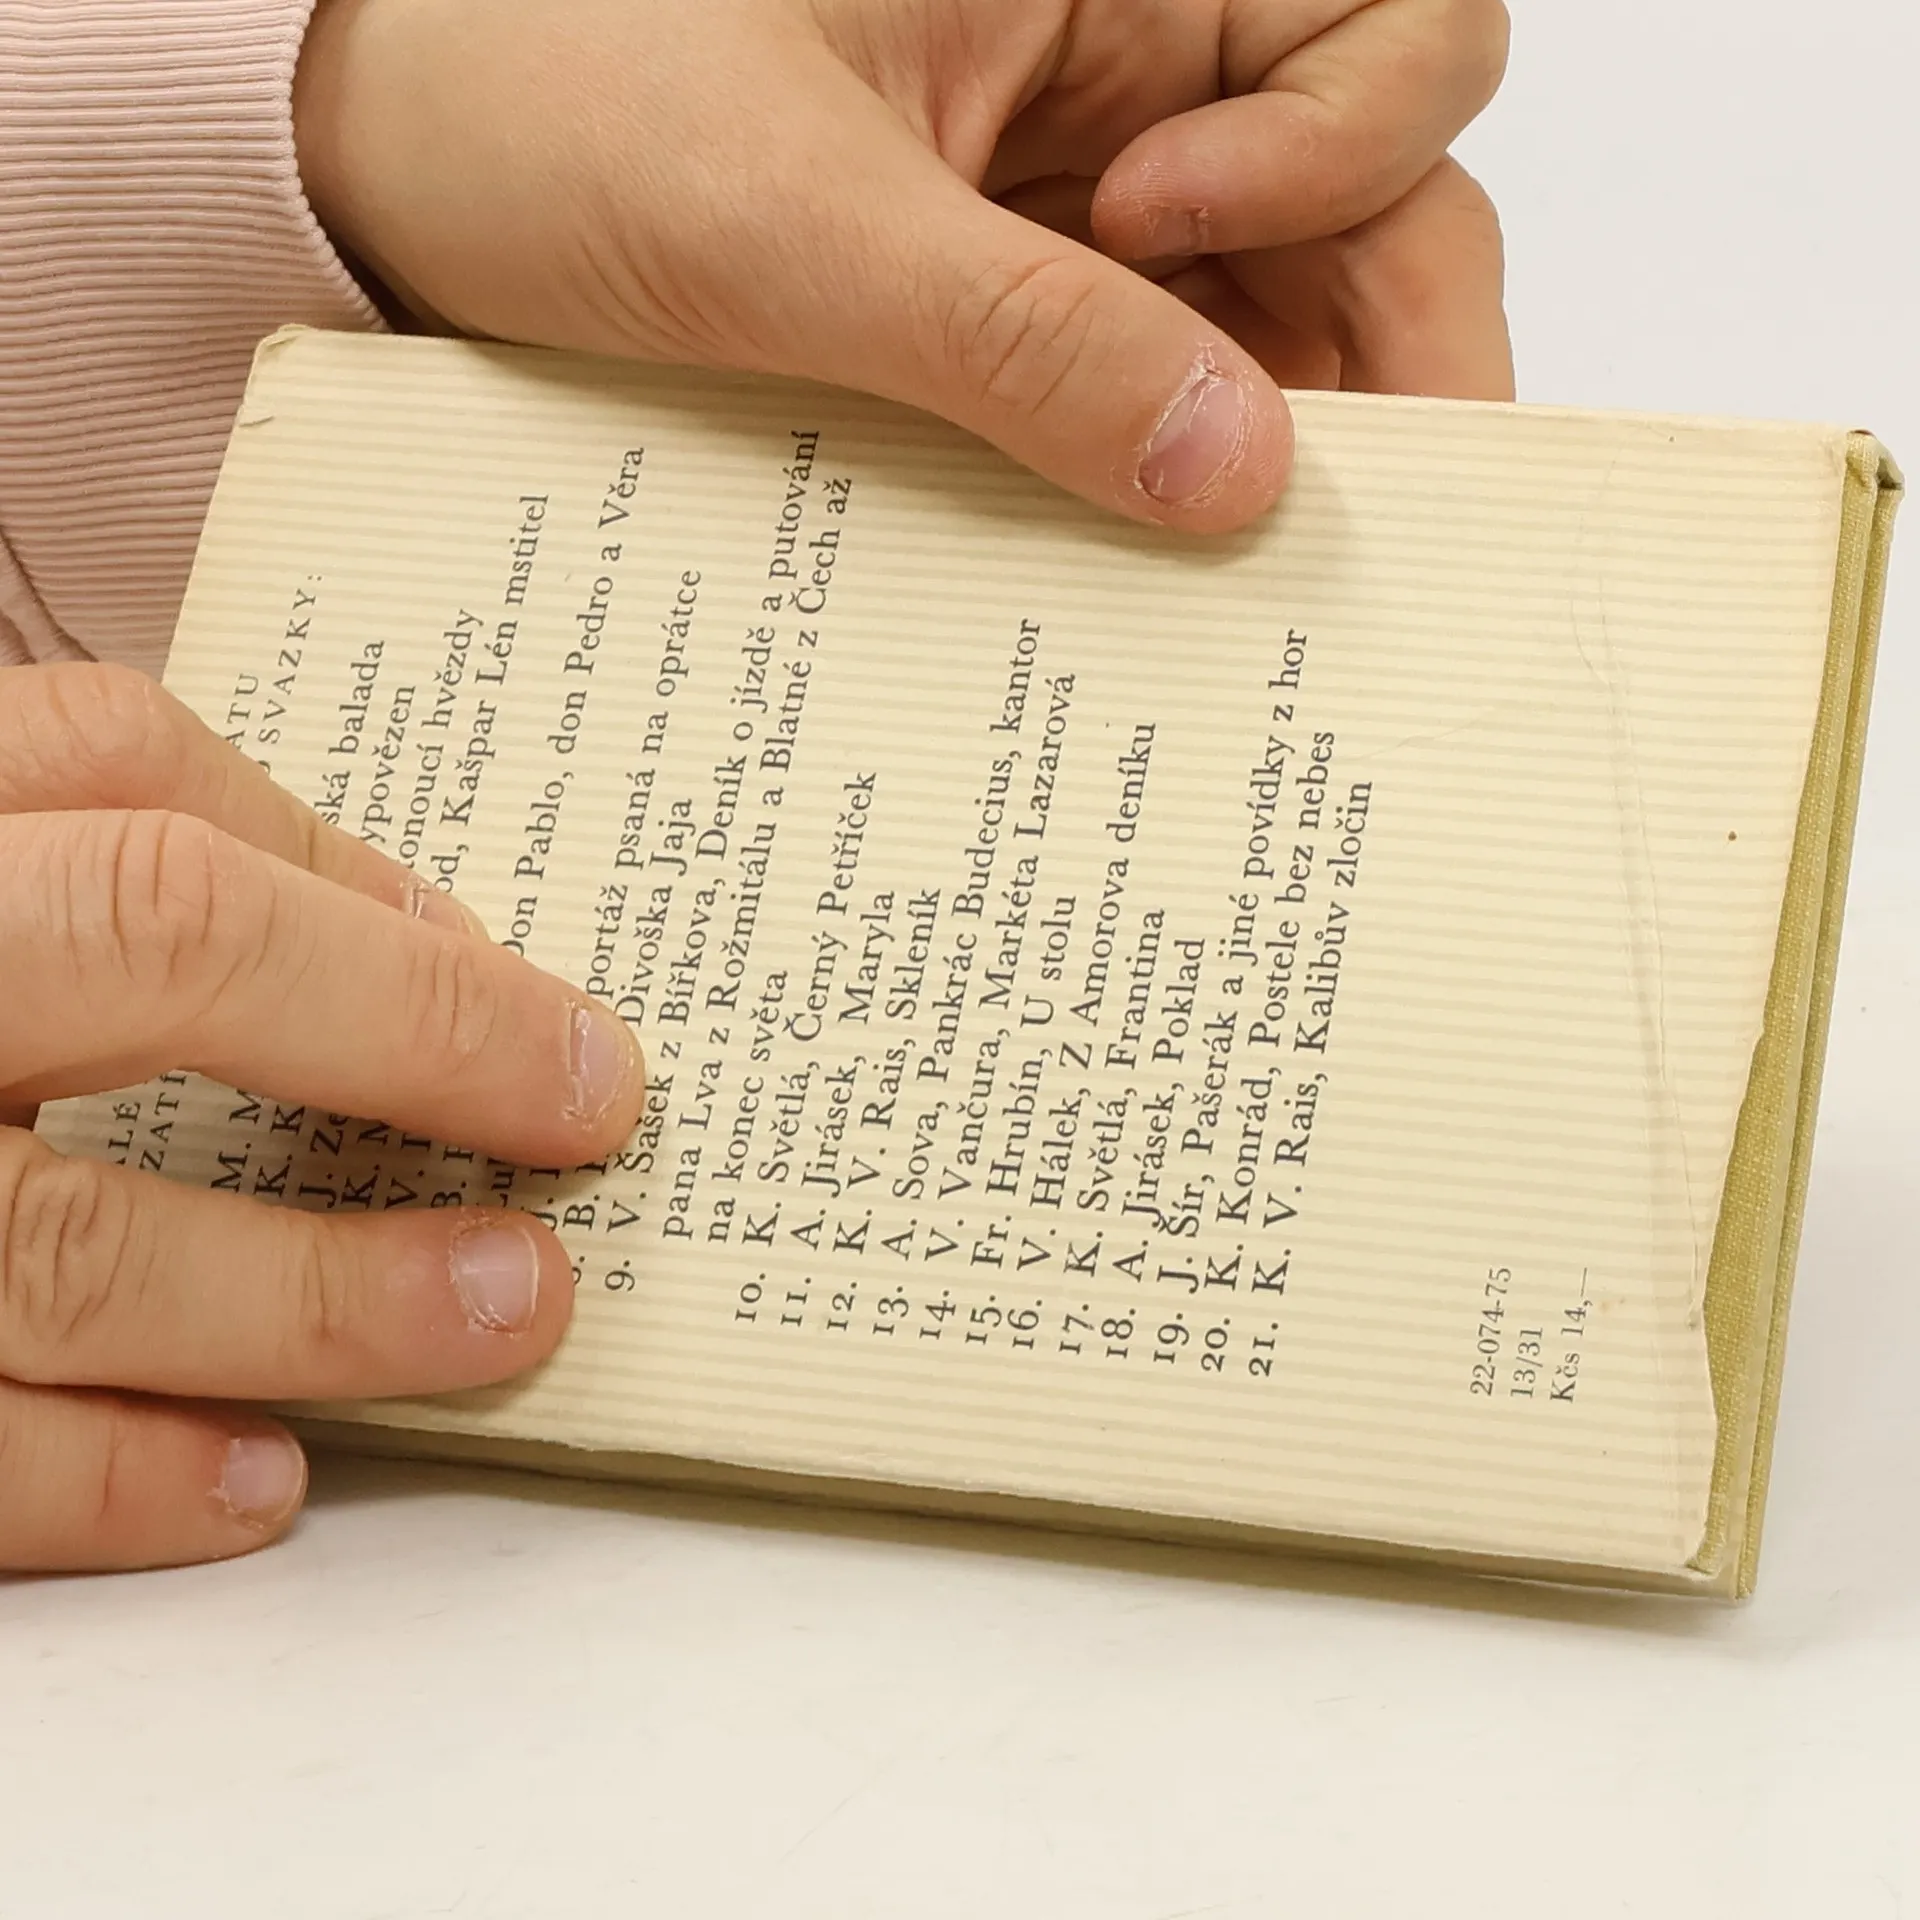 ATU
SVAZKY:
M. M ská balada
K. K ypovězen
J. Ze onoucí hvězdy
K. M od, Kašpar Lén mstitel
V.
B. Don Pablo, don Pedro a Věra
Lu
J. portáž psaná na oprátce
B. Divoška Jaja
9. V. Šašek z Bířkova, Deník o jízdě a putování
pana Lva z Rožmitálu a Blatné z Čech až
na konec světa
10. K. Světlá, Černý Petříček
11. A. Jirásek, Maryla
12. K. V. Rais, Skleník
13. A. Sova, Pankrác Budecius, kantor
14. V. Vančura, Markéta Lazarová
15. Fr. Hrubín, U stolu
16. V. Hálek, Z Amorova deníku
17. K. Světlá, Frantina
18. A. Jirásek, Poklad
19. J. Šír, Pašerák a jiné povídky z hor
20. K. Konrád, Postele bez nebes
21. K. V. Rais, Kalibův zločin
22-074-75
13/31
Kčs 14,—